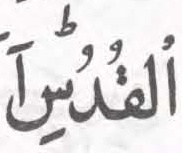 الْقُدُسِؕ اَ